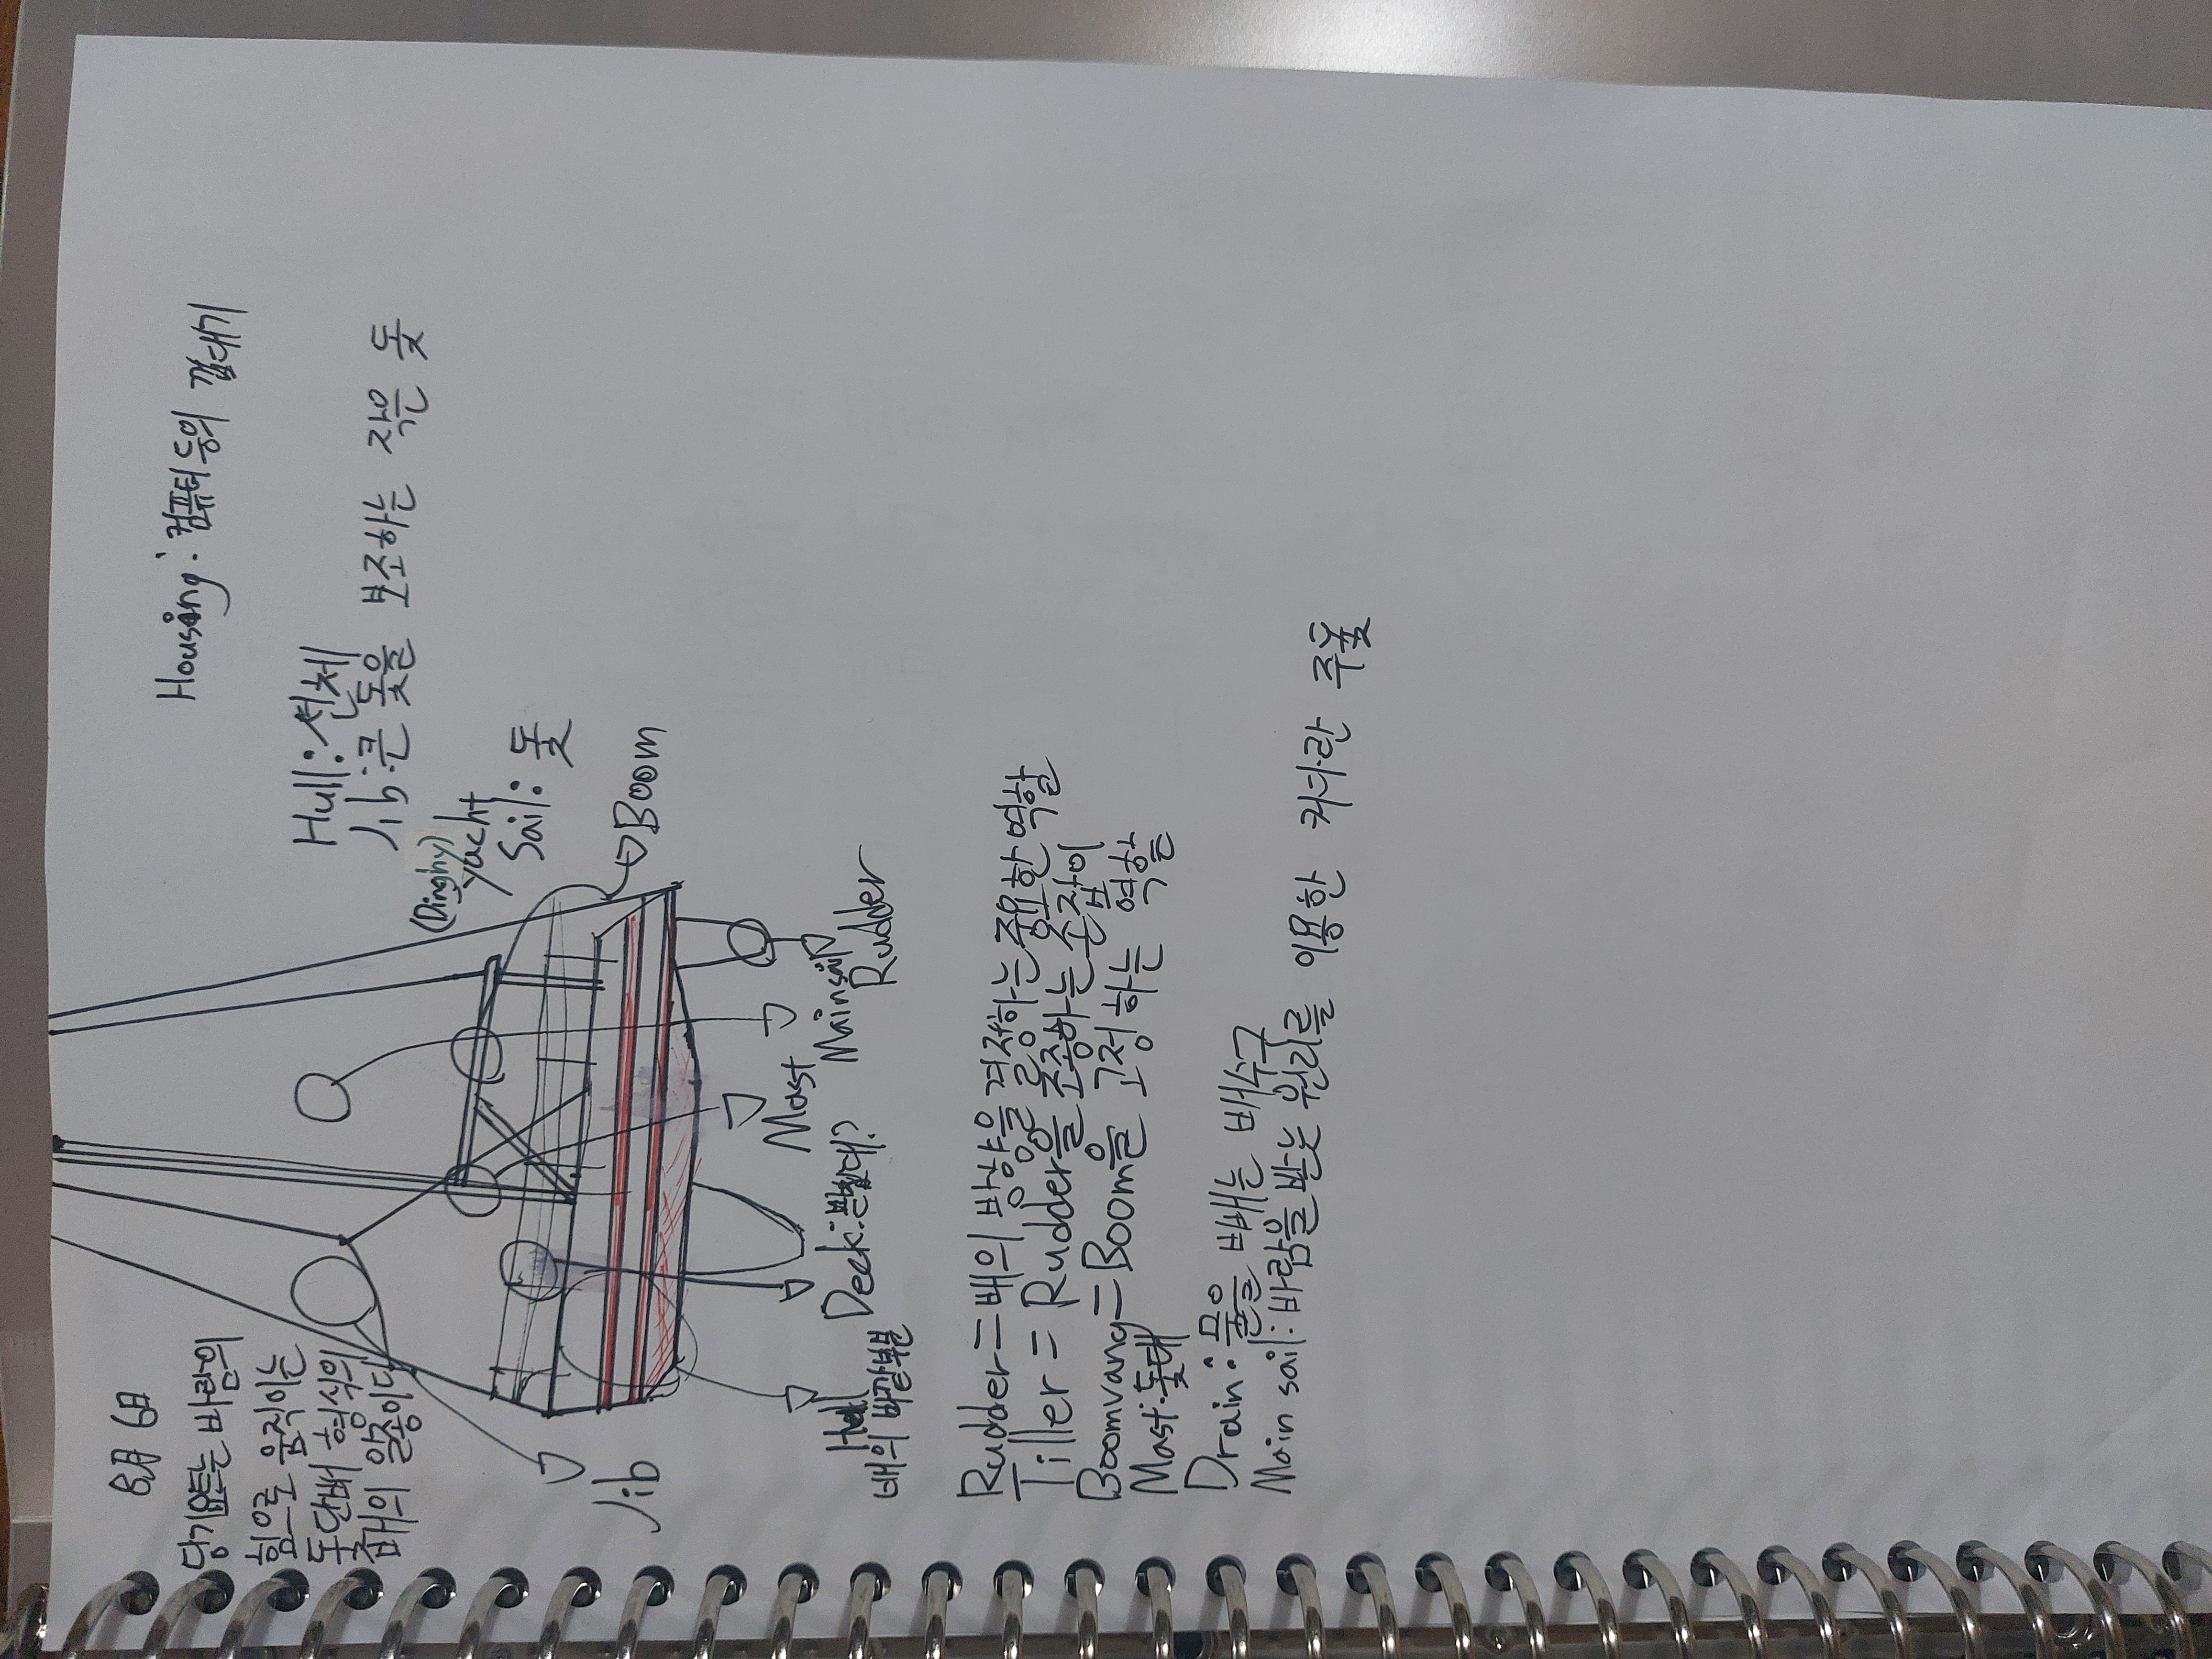 8월 6일
Housing: 컴퓨터 등의 껍데기
당기요트는 바람의
힘으로 움직이는
돛단배 형식의
배의 일종이다
Hull: 선체
Jib: 큰 돛을 보조하는 작은 돛
(Dinghy)
Yacht
Sail: 돛
Boom
Jib
Mast
Mainsail
Rudder
Deck: 발발대?
Hull
배의 바깥부분
Rudder = 배의 방향을 결정하는 중요한 역할
Tiller = Rudder를 조종하는 손잡이
Boomvang = Boom을 고정하는 역할
Mast: 돛대
Drain: 물을 빼는 배수구
Main sail: 바람을 받는 원리를 이용한 커다란 주돛